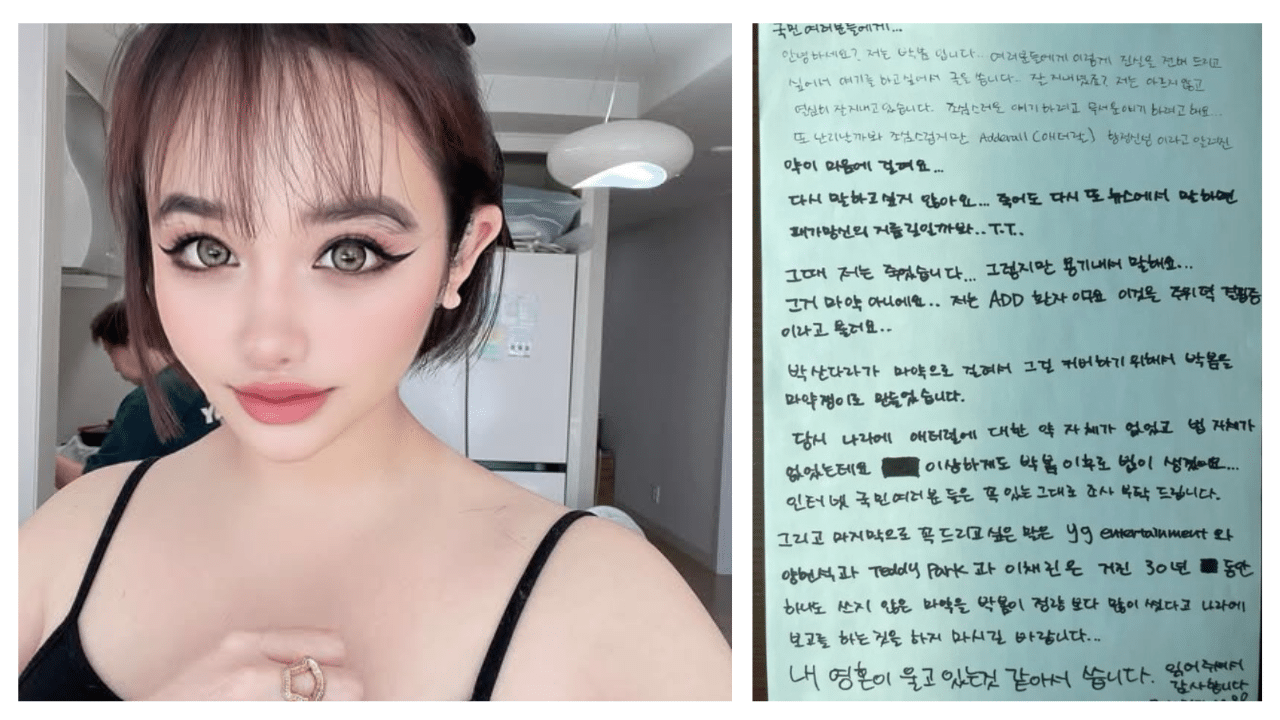 국민여러분들에게...
안녕하세요? 저는 박봄 입니다.. 여러분들에게 이렇게 진실을 전해 드리고
싶어서 얘기를 하고싶어서 글을 씁니다.. 잘 지내셨죠? 저는 아프지 않고
열심히 잘지내고 있습니다. 조심스러운 얘기 하려고 무서운얘기 하려고 해요...
또 난리난까봐 조심스럽지만 Adderall (애더럴) 향정신성 이라고 알려진
약이 마음에 걸려요...
다시 말하고싶지 않아요... 죽어도 다시 또 뉴스에서 말하면
패가망신의 지름길일까봐..T.T..
그때 저는 죽었습니다... 그렇지만 용기내서 말해요...
그거 마약 아니에요.. 저는 ADD 환자 이구요 이것은 주위력 결핍증
이라고 불러요..
박산다라가 마약으로 걸려서 그걸 커버하기 위해서 박봄을
마약쟁이로 만들었습니다.
당시 나라에 애터럴에 대한 약 자체가 없었고 법 자체가
없었는데요 이상하게도 박봄 이후로 법이 생겼어요...
인터넷 국민여러분 들은 꼭 있는 그대로 조사 부탁 드립니다.
그리고 마지막으로 꼭 드리고 싶은 말은 yg entertainment 와
양현석과 Teddy Park 과 이채린은 거진 30년 동안
하나도 쓰지 않은 마약을 박봄이 정량 보다 많이 썼다고 나라에
보고를 하는것을 하지 마시길 바랍니다...
내 영혼이 울고 있는것 같아서 씁니다. 읽어주셔서
감사합니다